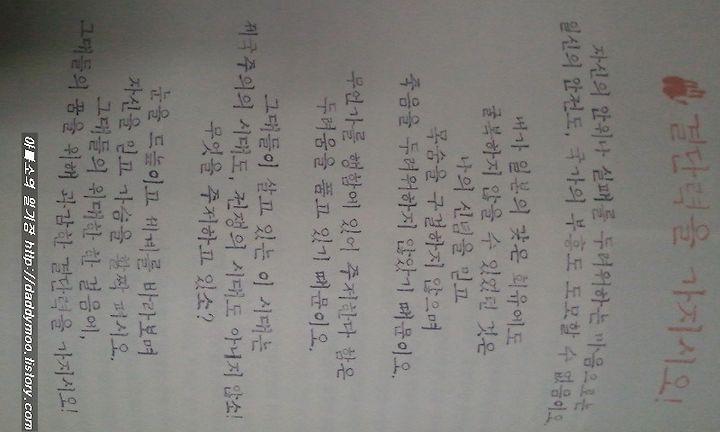 결단력을 가지시오!
자신의 안위나 실패를 두려워하는 마음으로는
일신의 안전도, 국가의 부흥도 도모할 수 없음이오.
내가 일본의 갖은 회유에도
굴복하지 않을 수 있었던 것은
나의 신념을 믿고
목숨을 구걸하지 않으며
죽음을 두려워하지 않았기 때문이오.
무언가를 행함에 있어 주저한다 함은
두려움을 품고 있기 때문이오.
그대들이 살고 있는 이 시대는
제국주의의 시대도, 전쟁의 시대도 아니지 않소!
무엇을 주저하고 있소?
눈을 드높이고 미래를 바라보며
자신을 믿고 가슴을 활짝 펴시오.
그대들의 위대한 한 걸음에,
그대들의 꿈을 위해 과감한 결단력을 가지시오!
야뽀스의 일기장 http://daddymoo.tistory.com